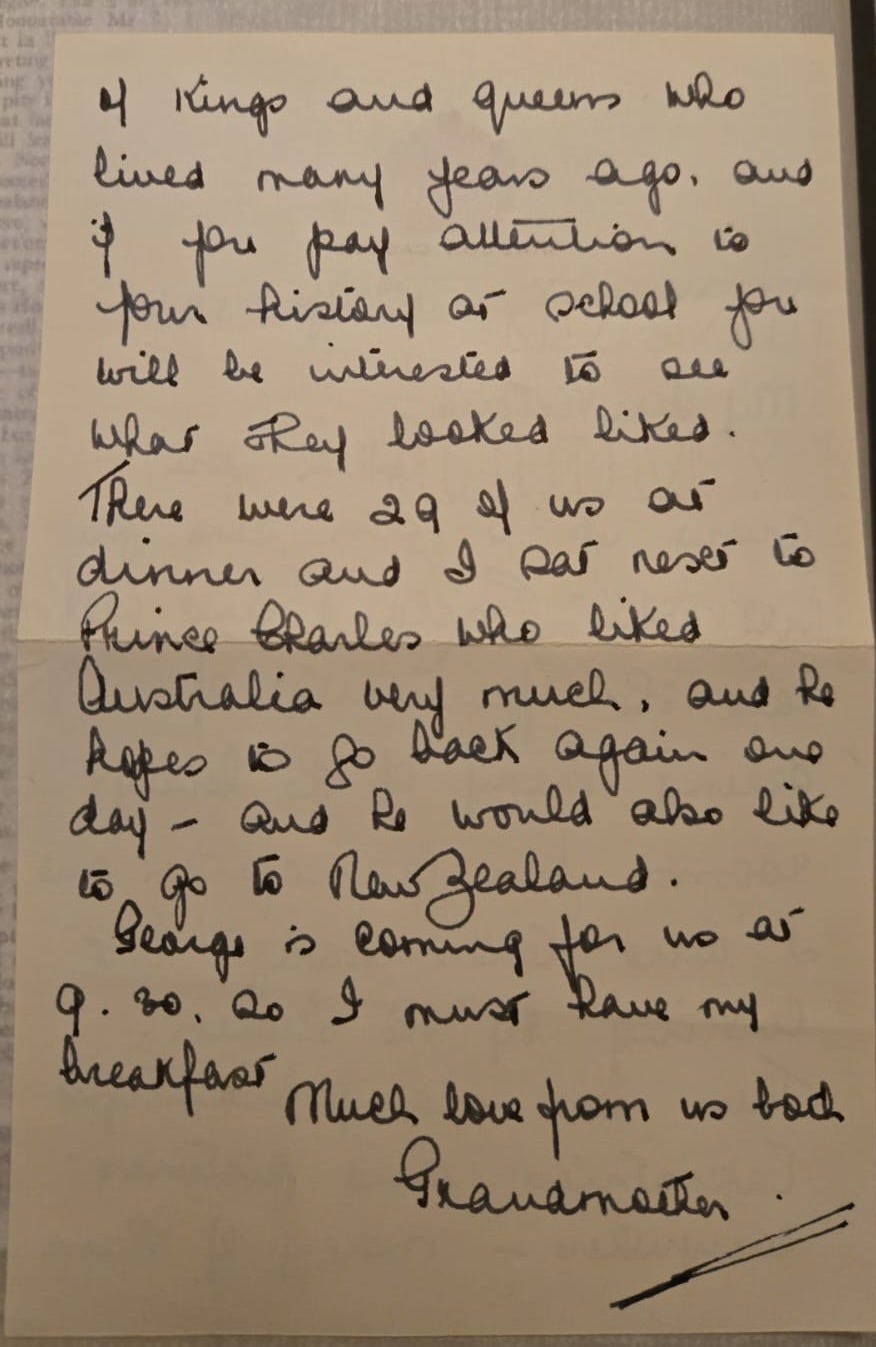 of Kings and queens who
lived many years ago, and
if you pay attention to
your history at school you
will be interested to see
what they looked liked.
There were 29 of us at
dinner and I sat next to
Prince Charles who liked
Australia very much, and he
hopes to go back again one
day - and he would also like
to go to New Zealand.
George is coming for us at
9.30, so I must have my
breakfast
Much love from us both
Grandmother.